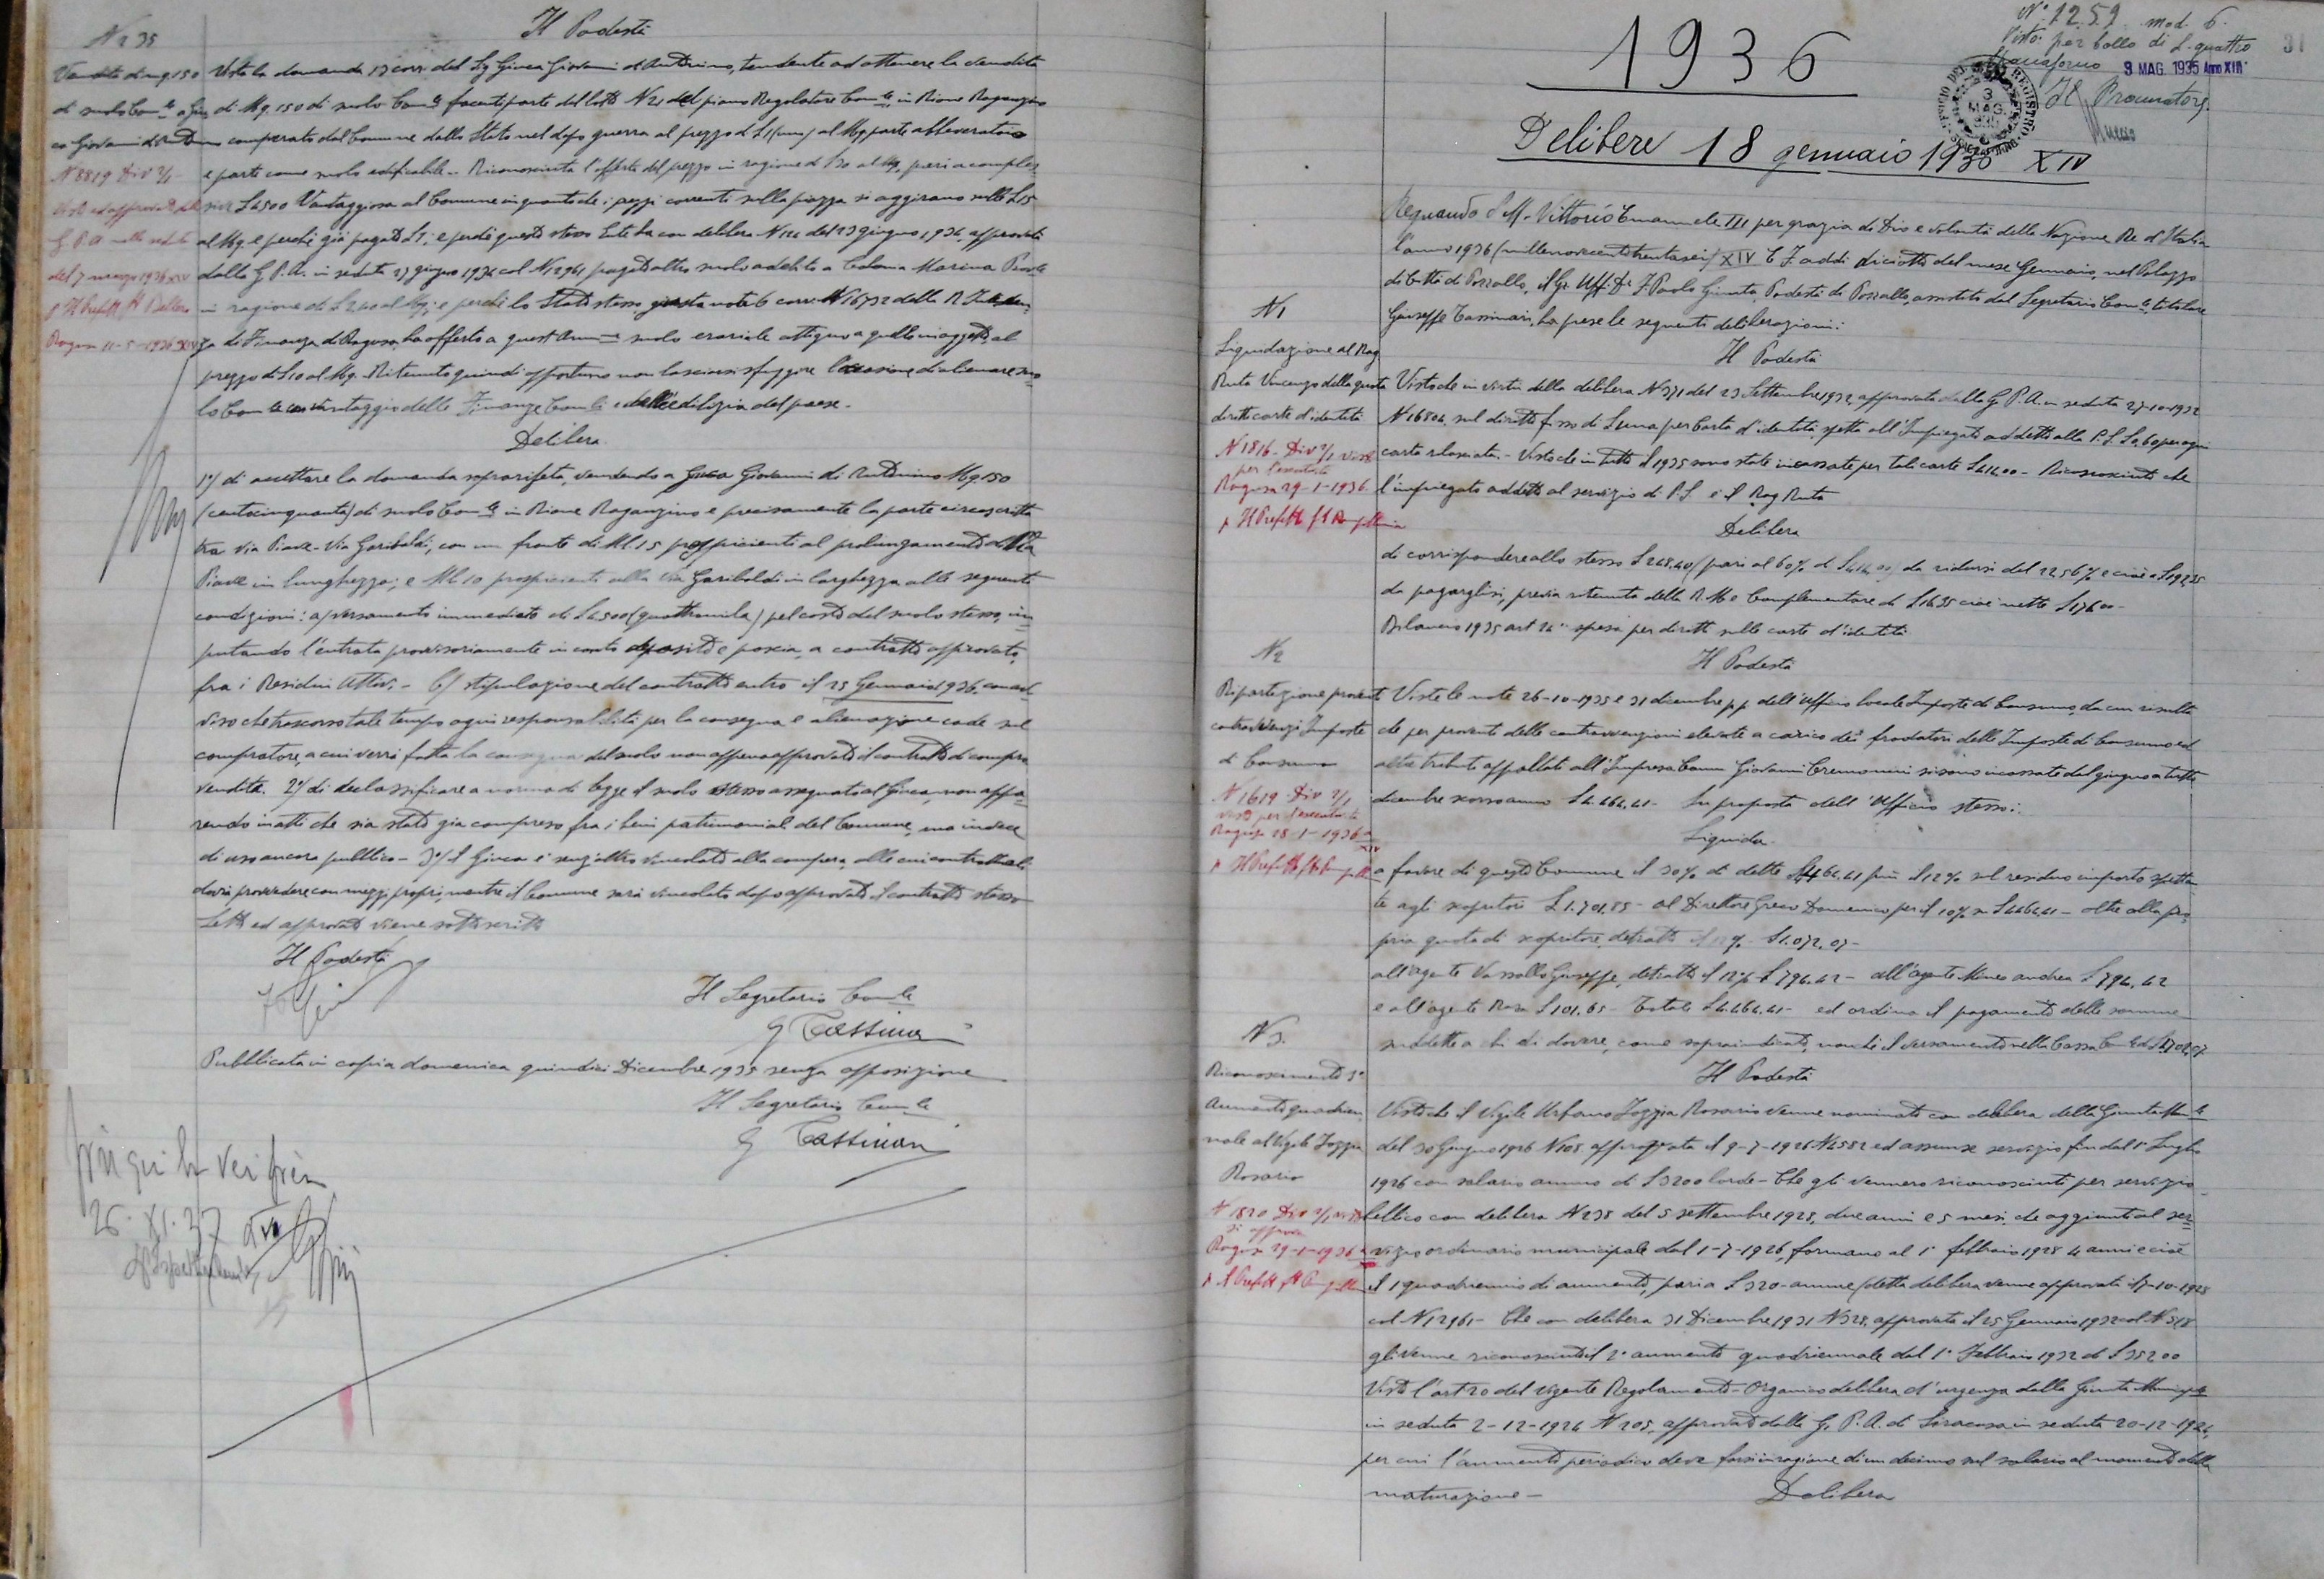 N 235
Il Podestà
Vendita di mq 150
di suolo Com.le a Giu
ca Giovanni di Antonino
N 8819 Div 2/1
Visto ed approvato dalla
G. P. A. nella seduta
del 7 marzo 1936 XIV
p Il Prefetto f.to
Ragusa 11-5-1936 XIV
Vista la domanda 13 corr. del Sig Giuca Giovanni di Antonino, tendente ad ottenere la vendita
di Mq. 150 di suolo Com.le facenti parte del lotto N 21 del piano Regolatore Com.le, in Rione Raganzino
comperato dal Comune dallo Stato nel dopo guerra al prezzo di L 1 (una) al Mq parte abbeveratoio
e parte come suolo edificabile - Riconosciuta l'offerta del prezzo in ragione di L 30 al Mq, pari a comples
sive L 4500 Vantaggiosa al Comune in quanto che i prezzi correnti sulla piazza si aggirano sulle L 15
al Mq. e perchè già pagato L 1; e perchè questo stesso Ente ha con delibera N 124 del 23 giugno 1934, approvata
dalla G. P. A. in seduta 27 giugno 1934 col N 12961 pagato altro suolo adibito a Colonia Marina
in ragione di L 2,40 al Mq; e perchè lo Stato stesso giusta nota 6 corr. N 16732 della R. Inten
za di Finanza di Ragusa, ha offerto a quest'Amm.ne suolo erariale attiguo a quello in oggetto, al
prezzo di L 10 al Mq. Ritenuto quindi opportuno non lasciarsi sfuggire l'occasione di alienare suo
lo Com.le con vantaggio delle Finanze Com.li e dell'edilizia del paese -
Delibera
1°/ di accettare la domanda soprariferita, vendendo a Giuca Giovanni di Antonino Mq. 150
(centocinquanta) di suolo Com.le in Rione Raganzino e precisamente la parte circoscritta
tra via Piave - Via Garibaldi, con un fronte di Ml. 15 prospicienti al prolungamento della Via
Piave in lunghezza; e Ml. 10 prospicienti alla Via Garibaldi in larghezza alle seguenti
condizioni: a/ versamento immediato di L 4500 (quattromila) pel costo del suolo stesso, im
putando l'entrata provvisoriamente in conto deposito e poscia, a contratto approvato,
fra i Residui Attivi - b/ stipulazione del contratto entro il 25 Gennaio 1936, con av
viso che trascorso tale tempo ogni responsabilità per la consegna e alienazione cade sul
compratore, a cui verrà fatta la consegna del suolo non appena approvato il contratto di compra
vendita. 2°/ di declassificare a norma di legge il suolo stesso assegnato al Giuca, non appa
rendo in atti che sia stato già compreso fra i beni patrimoniali del Comune, ma invece
di uso ancora pubblico - 3°/ Il Giuca è senz'altro vincolato alla compera, alle cui contrattuali
dovrà provvedere con mezzi propri, mentre il Comune sarà vincolato dopo approvato il contratto stesso
Letto ed approvato viene sottoscritto
Il Podestà
Il Segretario Com.le
G Tassinari
Pubblicata in copia domenica quindici Dicembre 1935 senza opposizione
Il Segretario Com.le
G Tassinari
26. XI. 37
N° 1259 mod. 6.
Visto per bollo di L. quattro
3 MAG. 1935 Anno XIII°
Il Procuratore
UFFICIO DEL REGISTRO
3 MAG
31
1936
Delibere 18 gennaio 1936 XIV
Regnando S. M. Vittorio Emanuele III per grazia di Dio e volontà della Nazione Re d'Italia
l'anno 1936 (millenovecentotrentasei) XIV E F. addì diciotto del mese Gennaio, nel Palazzo
di Città di Pozzallo, il Gr. Uff. Dr. F. Paolo Giunta, Podestà di Pozzallo, assistito dal Segretario Com.le titolare
Giuseppe Tassinari, ha prese le seguenti deliberazioni:
N 1
Liquidazione al Rag
Ruta Vincenzo della quota
diritti carte d'identità
N 1816 - Div 2/1 Visto
per l'esecutività
Ragusa 29-1-1936
p Il Prefetto f.to
Il Podestà
Visto che in virtù della delibera N 371 del 23 Settembre 1932, approvata dalla G. P. A. in seduta 27-10-1932
N 16804, sul diritto fisso di L una per Carta d'identità, spetta all'Impiegato addetto alla P. S. L 0,60 per ogni
carta rilasciata. - Visto che in tutto il 1935 sono state incassate per tali carte L 414,00 - Riconosciuto che
l'impiegato addetto al servizio di P.S. è il Rag Ruta
Delibera
di corrispondere allo stesso L 248,40 (pari al 60% di L 414,00) da ridursi del 22,56% e cioè a L 192,35
da pagarglisi, previa ritenuta della R. M. e Complementare di L 16.35 cioè nette L 176.00 -
Bilancio 1935 art 24 " spesa per diritti sulle carte d'identità
N 2
Ripartizione proventi
contravvenzi Imposte
di Consumo
N 1619 Div 2/1
visto per l'esecutività
Ragusa 28-1-1936
XIV
p Il Prefetto f.to
Il Podestà
Viste le note 26-10-1935 e 31 dicembre p.p. dell'Ufficio locale Imposte di Consumo, da cui risulta
che per proventi delle contravvenzioni elevate a carico dei frodatori delle Imposte di Consumo ed
altri tributi appaltati all'Impresa Comm Giovanni Cremonini si sono incassate dal giugno a tutto
dicembre scorso anno L 4.464,41 - Su proposta dell'Ufficio stesso:
Liquida
a favore di questo Comune il 30% di dette L 4464,41 più il 12% sul residuo importo spettan
te agli scopritori L 1.701,85 - al Direttore Greco Domenico per il 10% su L 4464,41 - oltre alla pro
pria quota di scopritore, detratto il 12% L 1.072,07 -
all'agente Vassallo Giuseppe, detratto il 12% L 794,42 - all'agente Mineo Andrea L 794,42
e all'agente Rosa L 101,65 - Totale L 4.464,41 - ed ordina il pagamento delle somme
suddette a chi di dovere, come sopraindicato, nonchè il versamento nella Cassa Com.le di L
N 3.
Riconoscimento 3°
Aumento quadrien
nale al Vigile Zoggia
Rosario
N 1820 Div 2/1 visto
si approva
Ragusa 29-1-1936
p Il Prefetto f.to
Il Podestà
Visto che il Vigile Urbano Zoggia Rosario venne nominato con delibera della Giunta Mun.le
del 30 Giugno 1926 N 108, approvata il 9-7-1926 N 4582 ed assunse servizio fin dal 1° Luglio
1926 con salario annuo di L 3200 lorde - Che gli vennero riconosciuti per servizio
bellico con delibera N 238 del 5 settembre 1928, due anni e 5 mesi, che aggiunti al ser
vizio ordinario municipale dal 1-7-1926, formano al 1° febbraio 1928 4 anni e cioè
il 1 quadriennio di aumento, pari a L 320 - annue (detta delibera venne approvata il 7-10-1928
col N 12961 - Che con delibera 31 Dicembre 1931 N 328, approvata il 25 Gennaio 1932 col N 518
gli venne riconosciuto il 2° aumento quadriennale dal 1° Febbraio 1932 di L 352.00
Visto l'art 20 del vigente Regolamento - Organico delibera d'urgenza della Giunta Municipale
in seduta 2-12-1924 N 205, approvato dalla G. P. A. di Siracusa in seduta 20-12-1924,
per cui l'aumento periodico deve farsi in ragione di un decimo sul salario al momento della
maturazione -
Delibera